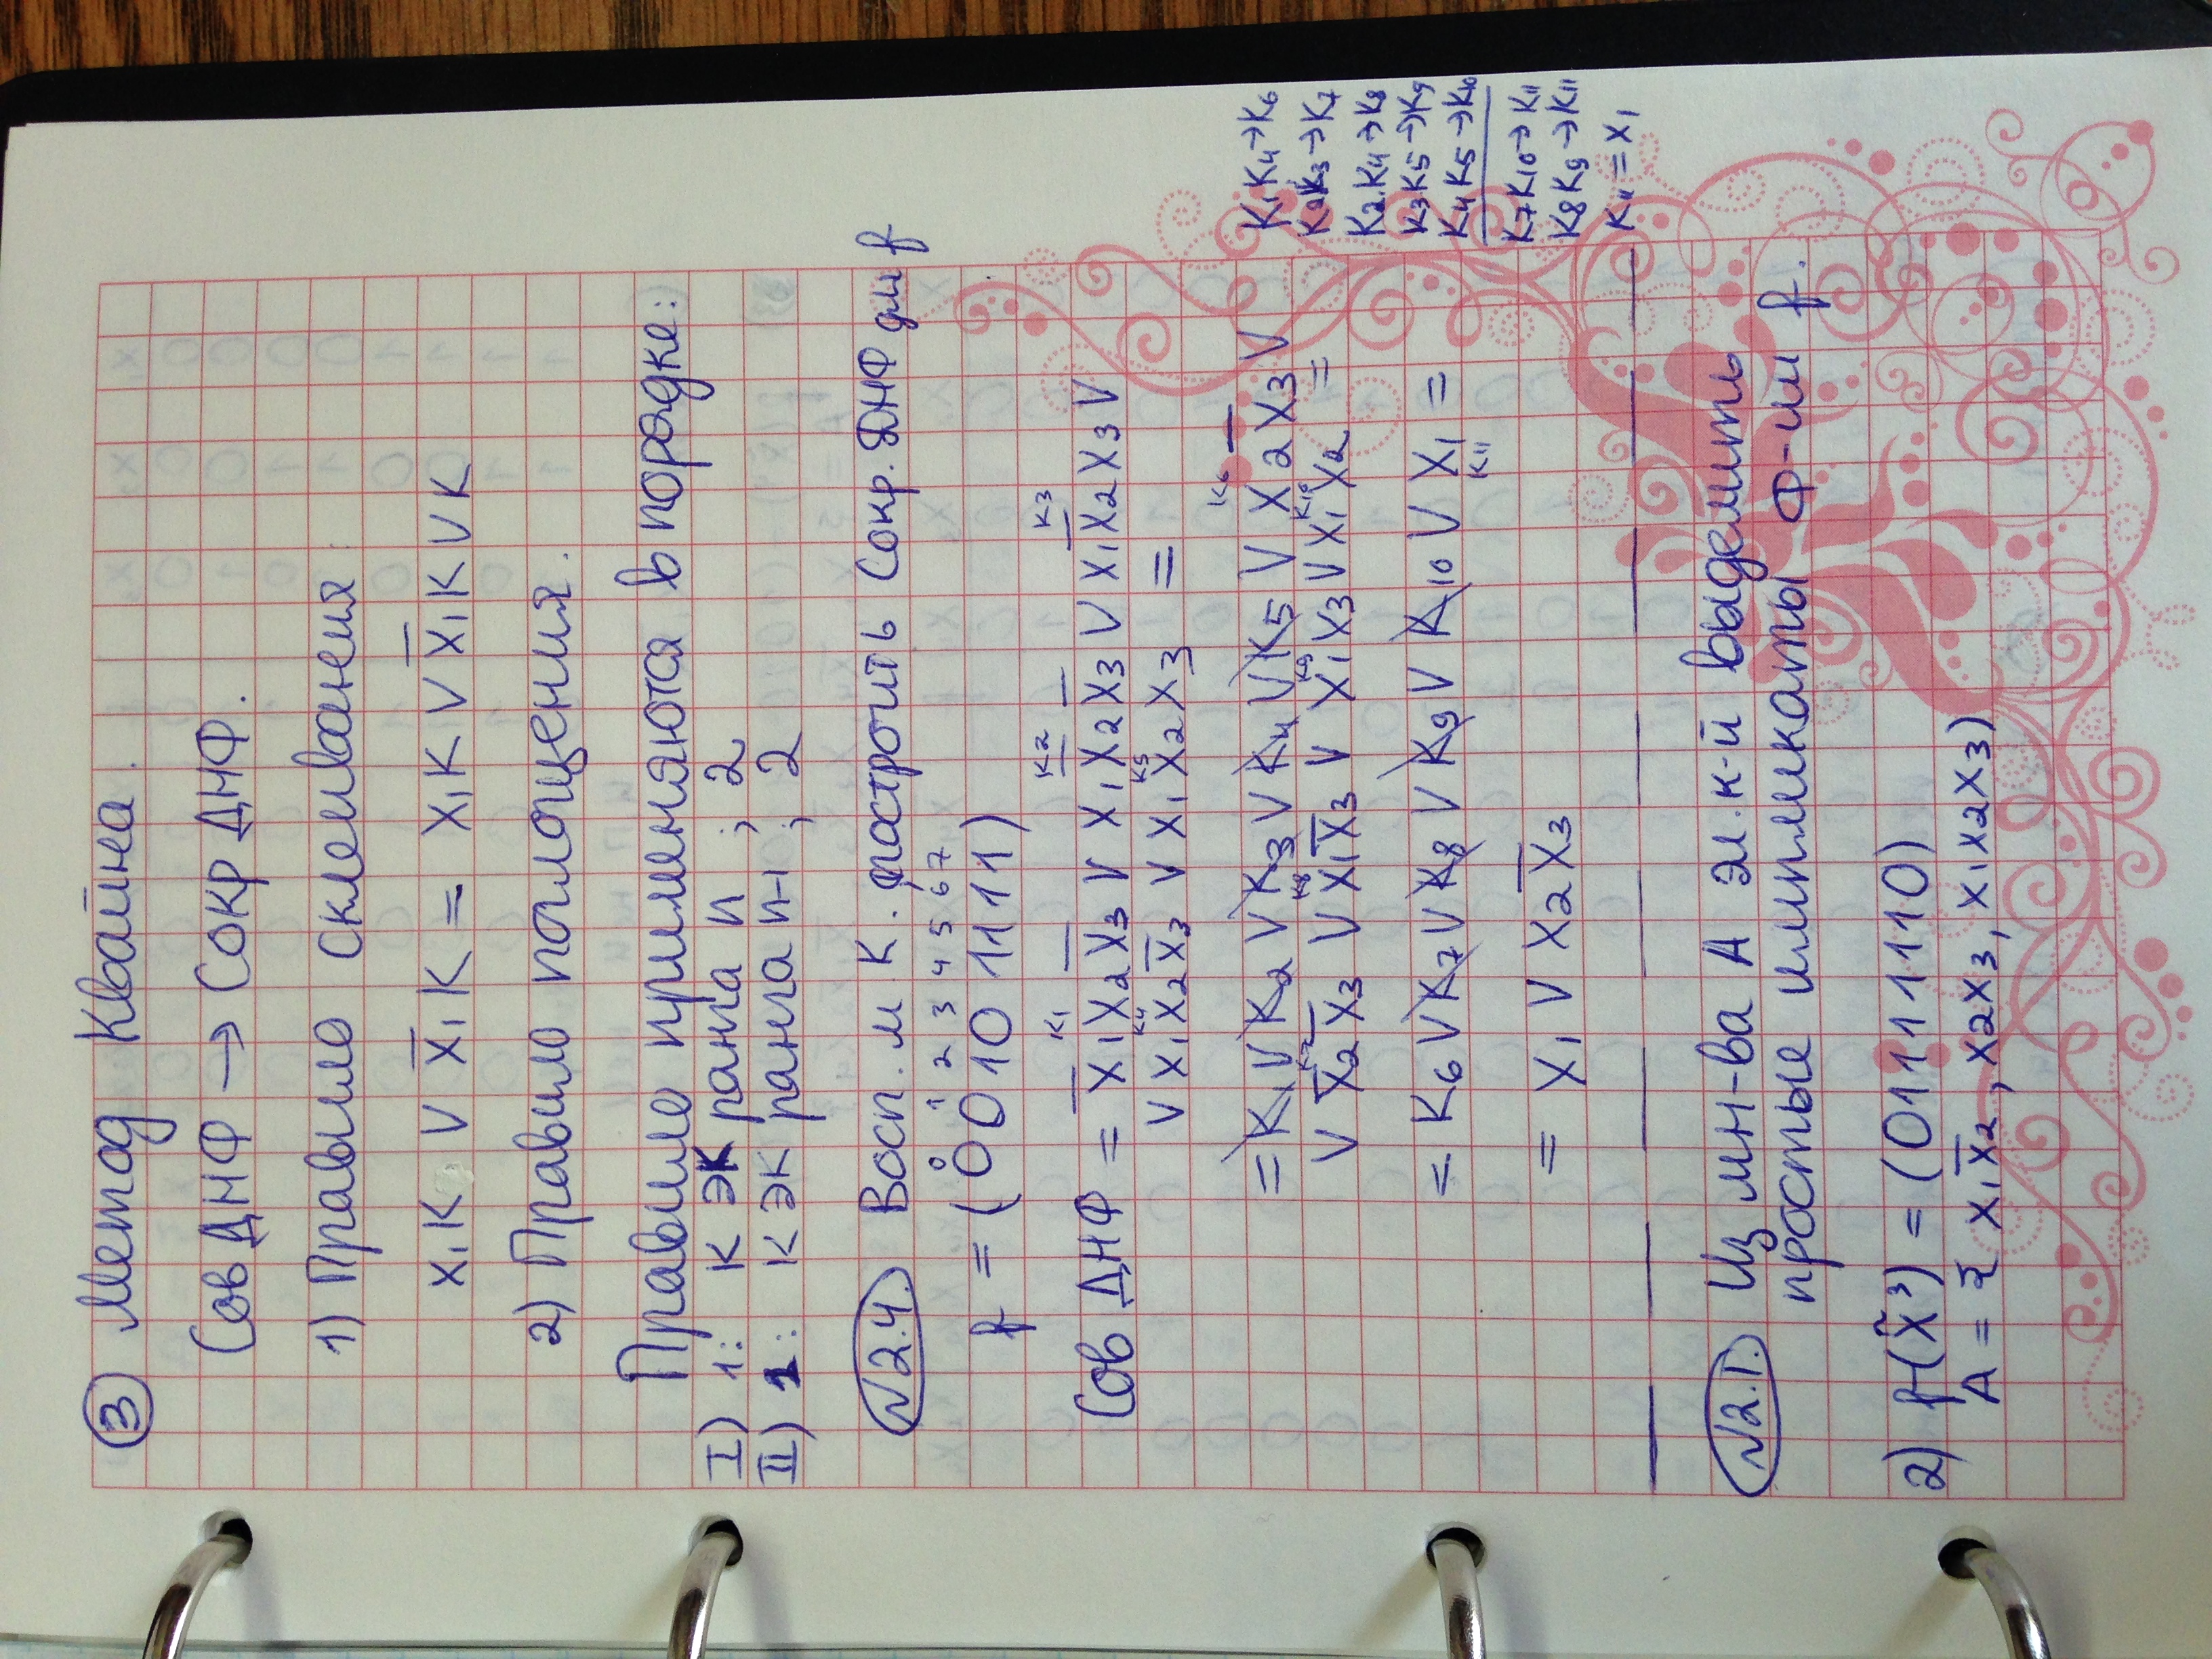 ③ Метод Квайна.
Сов ДНФ → Сокр ДНФ.
1) Правило склеивания:
x₁K ∨ x̅₁K = x₁K ∨ x̅₁K ∨ K
2) Правило поглощения.
Правило применяются в порядке:
I) 1: K ЭК ранга n ; 2
II) 1: K ЭК ранга n-1 ; 2
№2.4. Восп. м К. построить Сокр. ДНФ для f
0 1 2 3 4 5 6 7
f = (0010 1111)
K₁ K₂ K₃
Сов ДНФ = x̅₁x₂x̅₃ ∨ x₁x̅₂x̅₃ ∨ x₁x̅₂x₃ ∨
K₄ K₅
∨ x₁x₂x̅₃ ∨ x₁x₂x₃ =
K₆
= K₁ ∨ K₂ ∨ K₃ ∨ K₄ ∨ K₅ ∨ x₂x̅₃ ∨
K₇ K₈ K₉ K₁₀
∨ x̅₂x₃ ∨ x₁x̅₃ ∨ x₁x₃ ∨ x₁x₂ =
= K₆ ∨ K₇ ∨ K₈ ∨ K₉ ∨ K₁₀ ∨ x₁ =
K₁₁
= x₁ ∨ x₂x̅₃
K₁K₄→K₆
K₂K₃→K₇
K₂K₄→K₈
K₃K₅→K₉
K₄K₅→K₁₀
K₇K₁₀→K₁₁
K₈K₉→K₁₁
K₁₁=x₁
№2.1. Из мн-ва A эл.к-й выделить
простые импликанты ф-ии f.
2) f(x̃³) = (01111110)
A = { x₁x̅₂, x₂x₃, x₁x₂x₃)